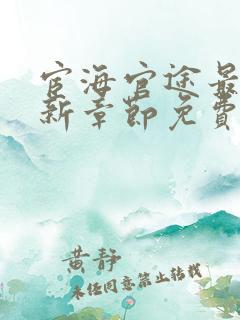 宦海官途最
新章節免費
黄静
未经同意禁止转载